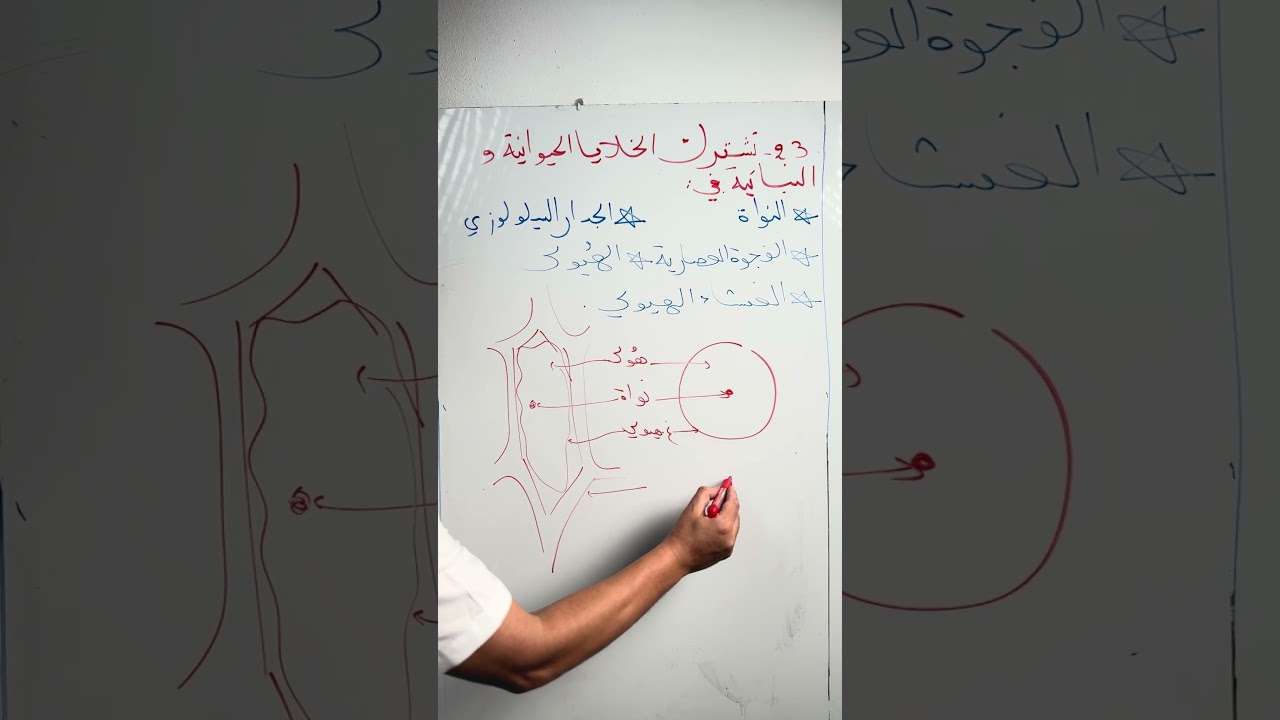 23- تشترك الخلايا الحيوانية و
النباتية في:
* النواة * الجدار السيلولوزي
* الفجوة العصارية * الهيولى
* الغشاء الهيولي.
هيولى
نواة
غ هيولي